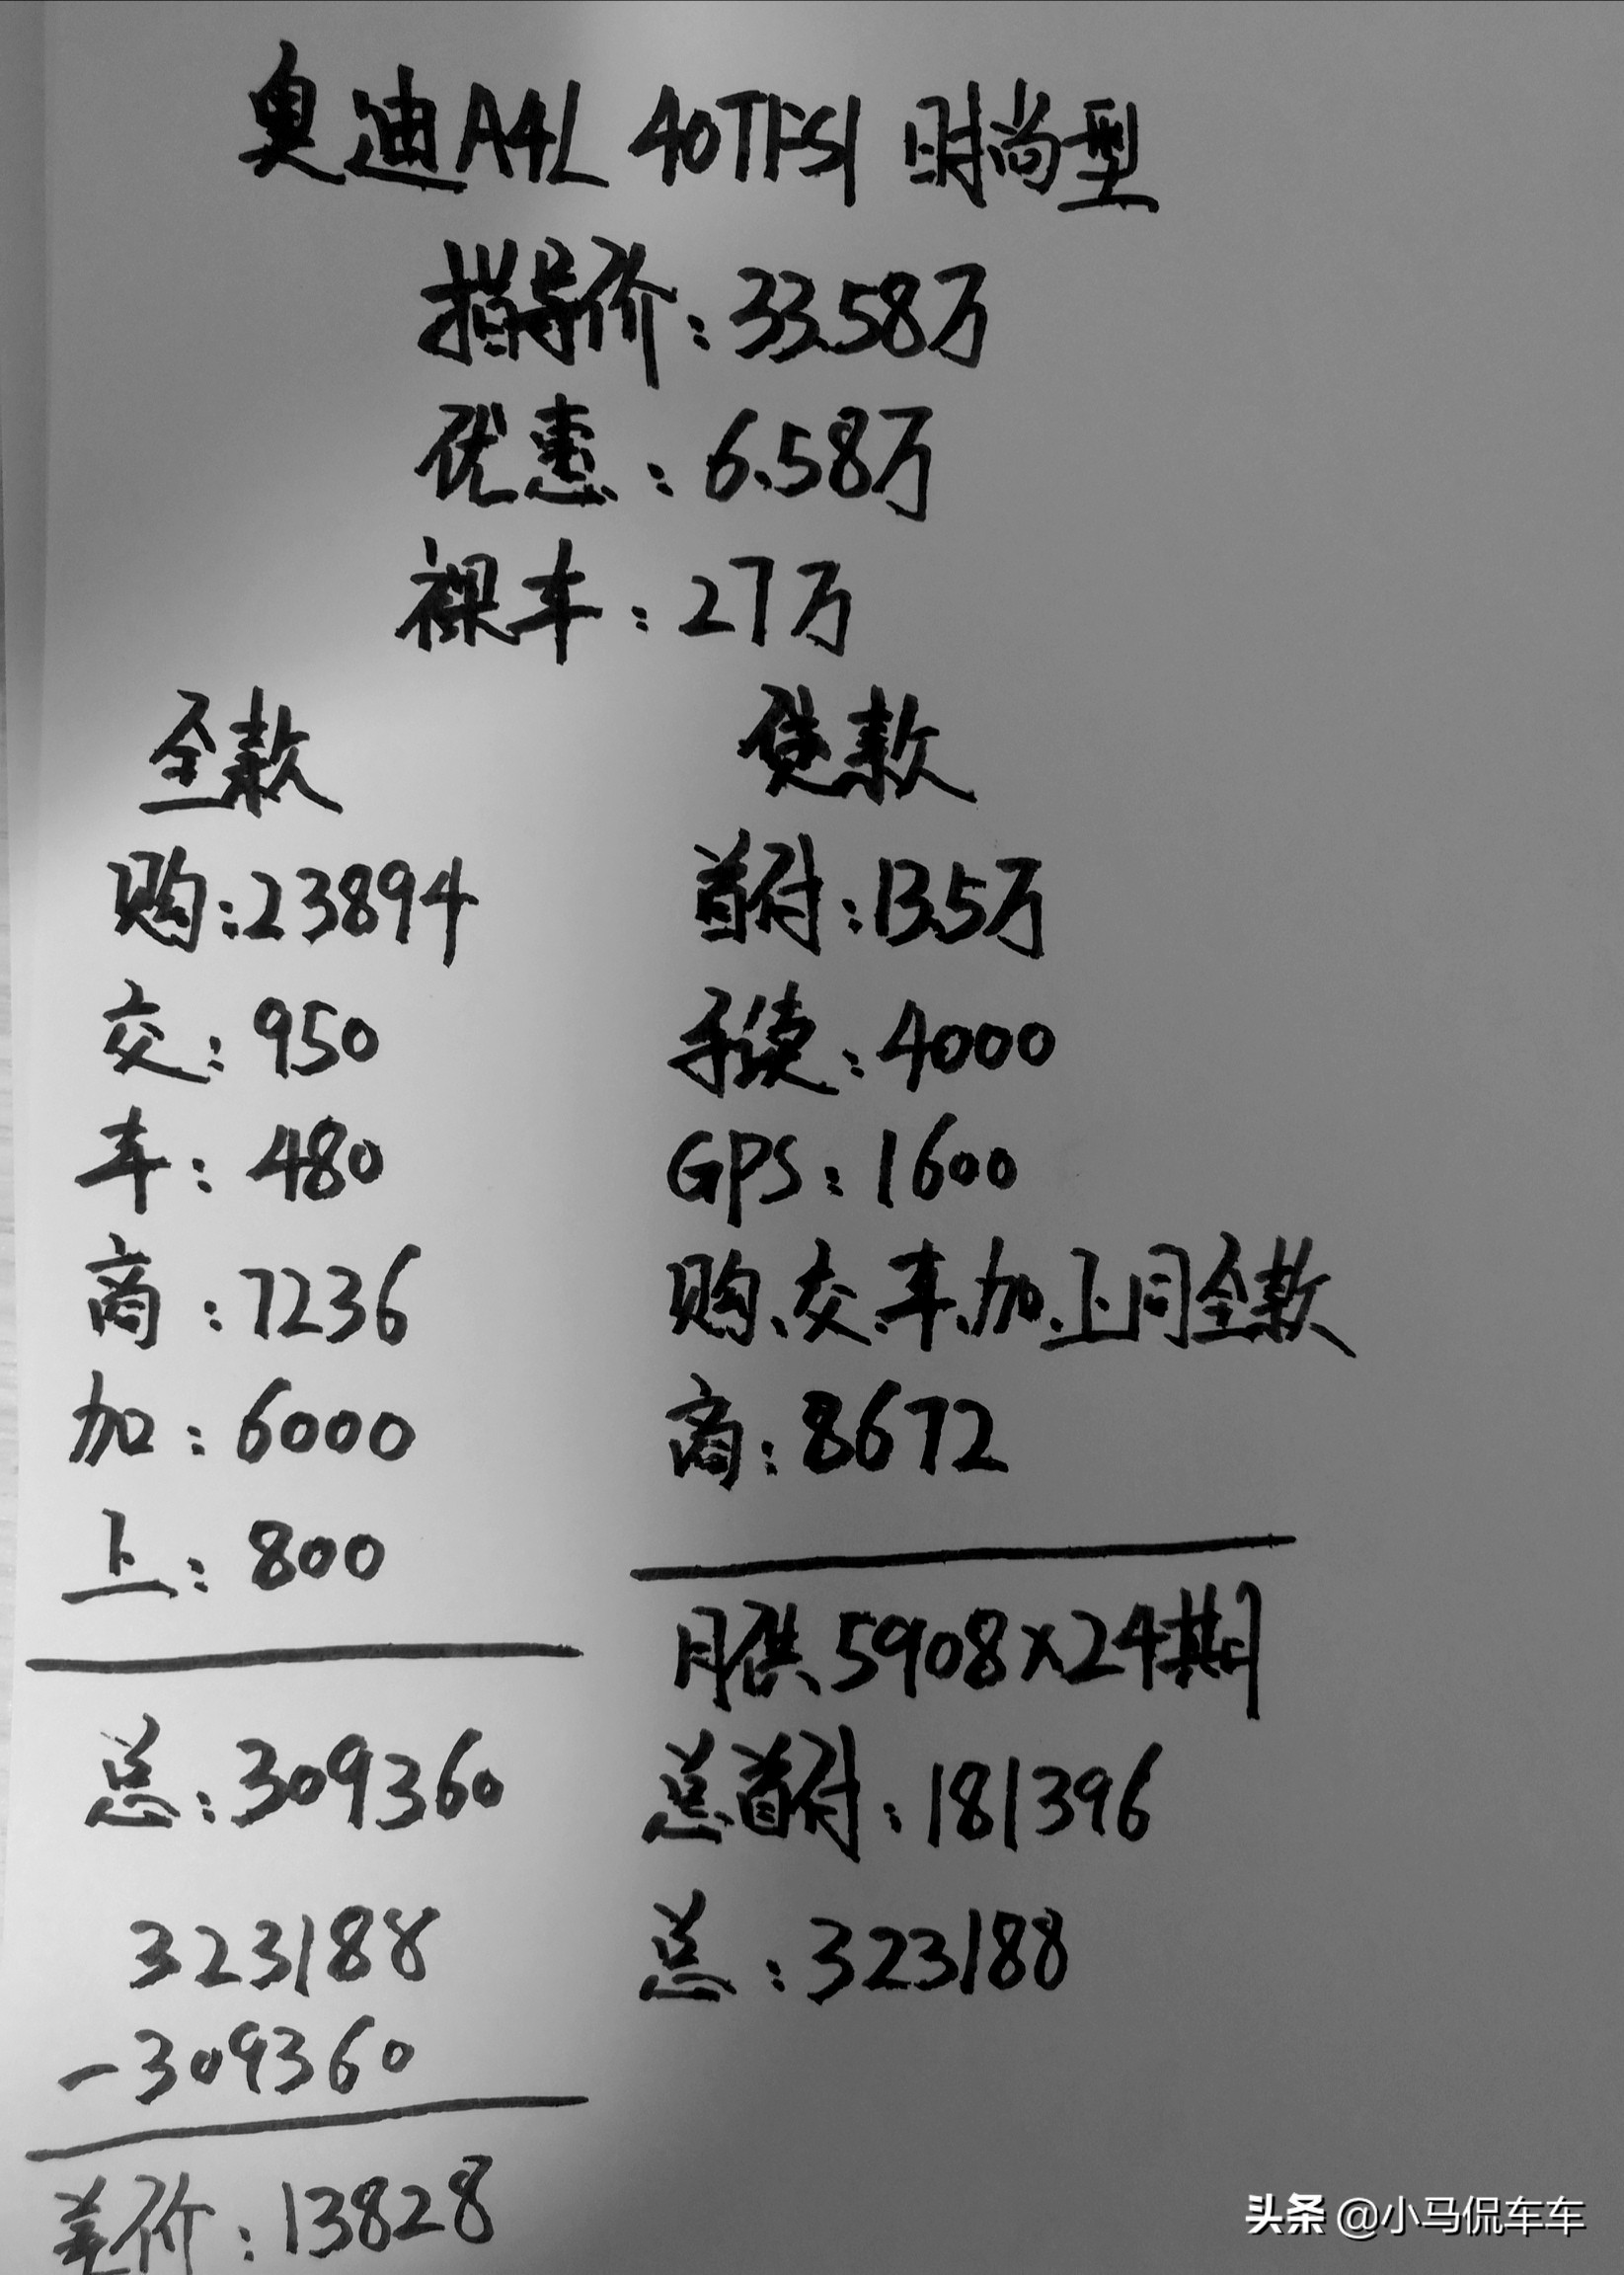 奥迪A4L 40TFSI 时尚型
指导价：33.58万
优惠：6.58万
裸车：27万
全款
购：23894
交：950
车：480
商：7236
加：6000
上：800
总：309360
323188
-309360
差价：13828
贷款
首付：13.5万
手续：4000
GPS：1600
购、交、车、加、上同全款
商：8672
月供5908×24期
总首付：181396
总：323188
头条 @小马侃车车